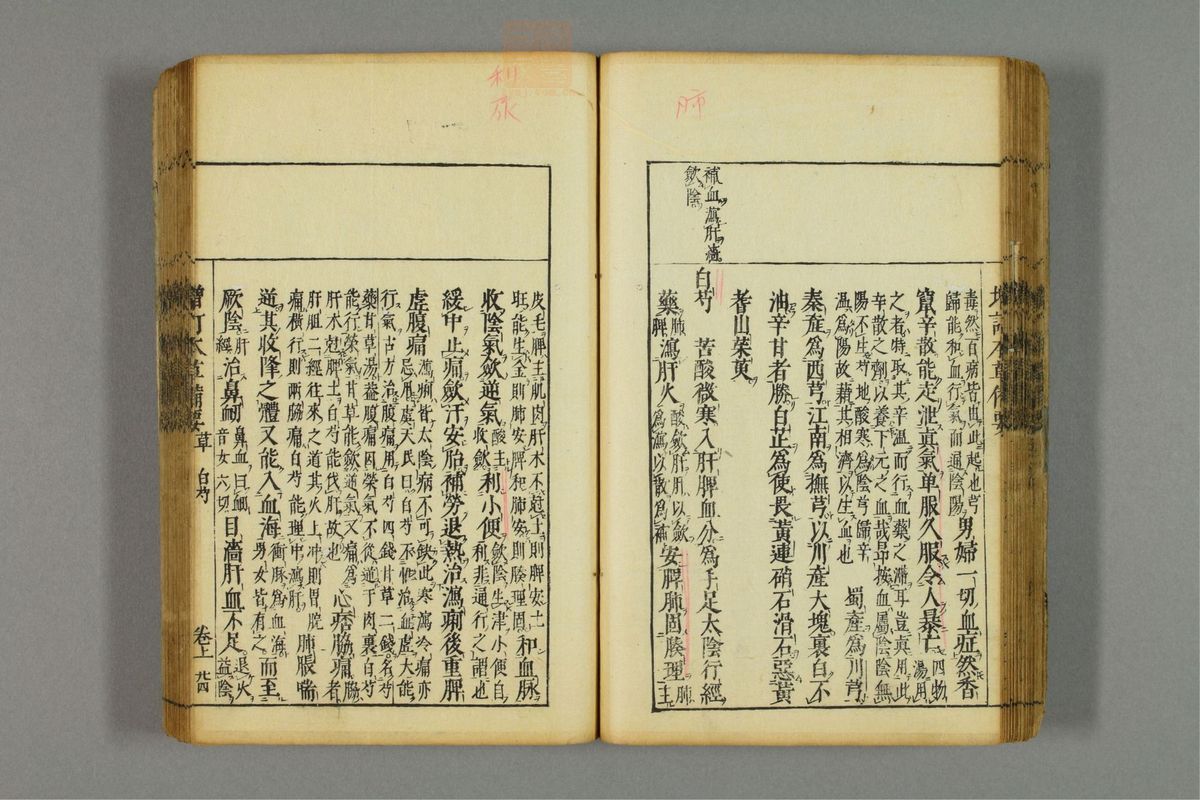 肺
補血瀉肝濇
歛陰
毒然百病皆也此起也芎
歸能和血行氣而通陰陽
男婦一切血症然香
竄辛散能走泄真氣单服久服令人暴亡四物湯用
之者特取其辛溫而行血藥之滯耳豈真用此
辛散之劑以養下元之血哉昂按血屬陰陰無
陽不生芍地酸寒為陰芎歸辛
溫為陽故藉其相濟以生血也
蜀產為川芎
秦產為西芎江南為撫芎以川產大塊裏白不
油辛甘者勝白芷為使畏黃連硝石滑石惡黃
耆山茱萸
白芍 苦酸微寒入肝脾血分為手足太陰行經
藥肺脾瀉肝火酸歛肝肝以歛為瀉以散為補安脾肺固腠理肺主
皮毛脾主肌肉肝木不尅土則脾安土
旺能生金則肺安脾和肺安則腠理固
和血脉
收陰氣歛逆氣酸主收歛利小便歛陰生津小便自利非通行之謂也
緩中止痛歛汗安胎補勞退熱治瀉痢後重脾
虛腹痛
瀉痢皆太陰病不可缺此寒瀉冷痛亦
忌用虞天民曰白芍不惟治血虛大能
行氣古方治腹痛用白芍四錢甘草二錢名芍
藥甘草湯蓋腹痛因榮氣不從逆于肉裏白芍
能行榮氣甘草能歛逆氣又痛為
肝木尅脾土白芍能伐肝故也
心痞脇痛脇者
肝膽二經往來之道其火上冲則胃脘
痛橫行則兩脇痛白芍能理中瀉肝
肺脹喘
逆其收降之體又能入血海衝脈為血海男女皆有之而至
厥陰肝經治鼻衄鼻血曰衄音女六切目濇肝血不足退火益陰
增訂本草備要 草 白芍 卷上 廿四